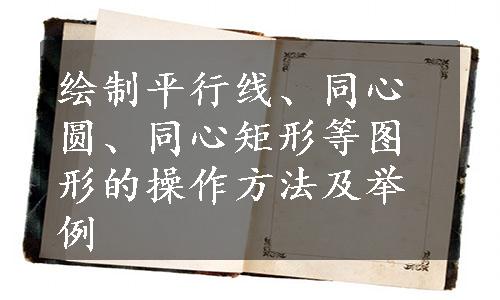 绘制平行线、同心
圆、同心矩形等图
形的操作方法及举
例